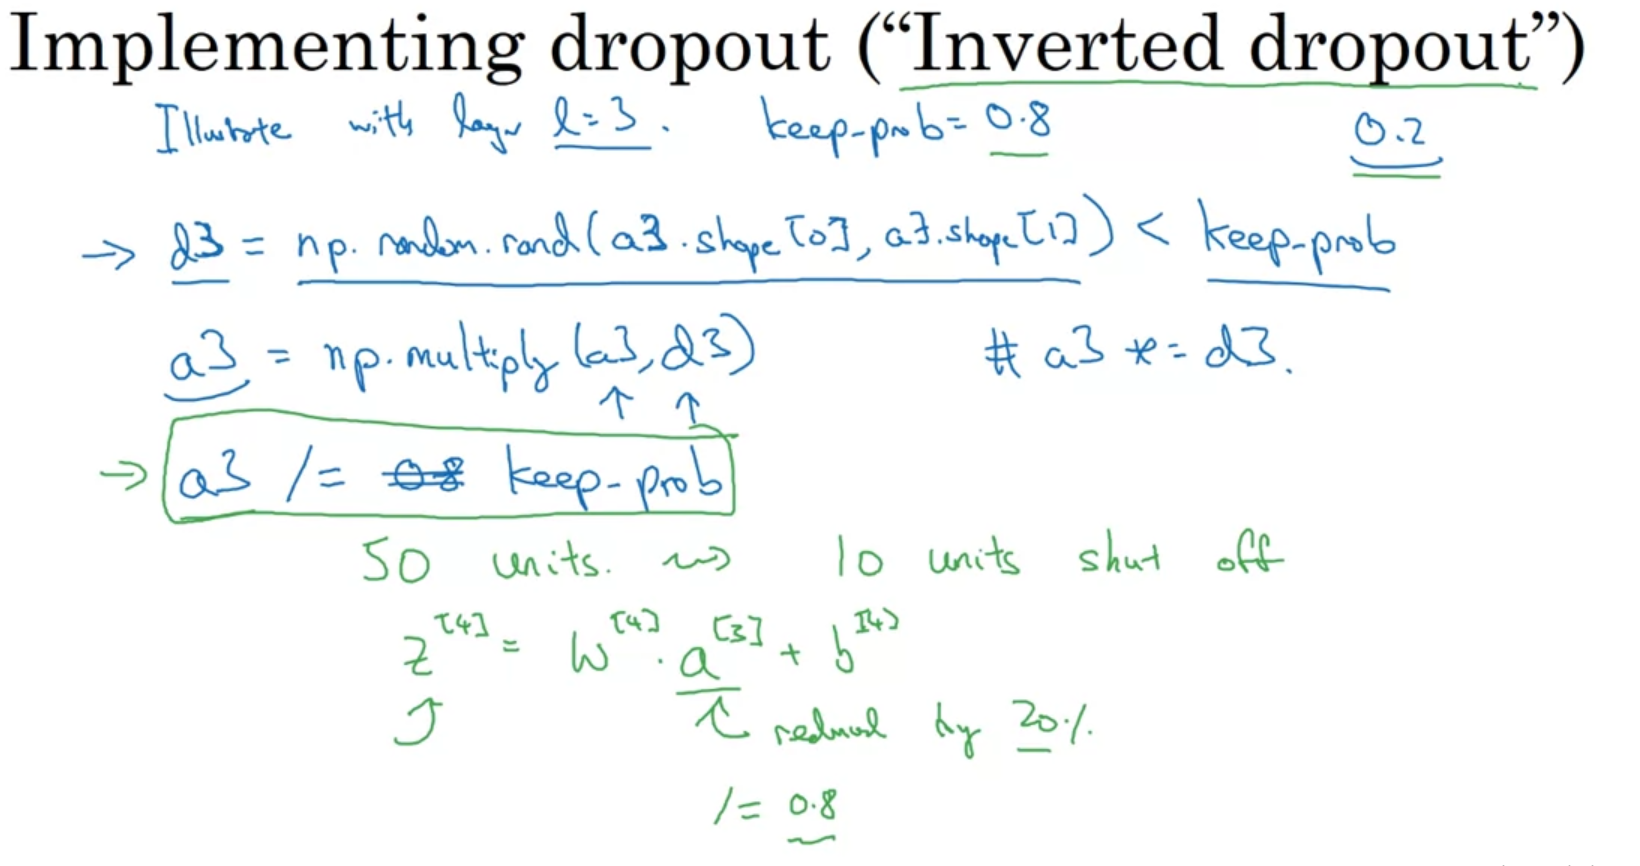 Implementing dropout (“Inverted dropout”)
Illustrate with layer l=3. keep-prob= 0.8 0.2
→ d3 = np.random.rand(a3.shape[0], a3.shape[1]) < keep-prob
a3 = np.multiply(a3,d3) # a3 *= d3.
↑ ↑
→ a3 /= 0.8 keep-prob
50 units. ⇝ 10 units shut off
z[4] = W[4] · a[3] + b[4]
reduced by 20%
/= 0.8